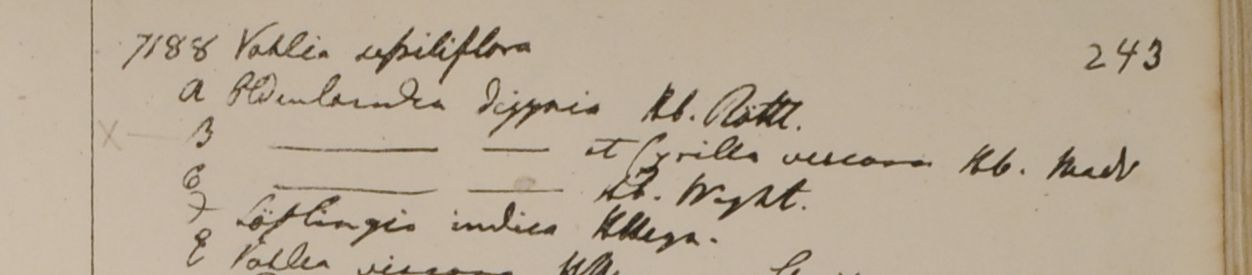 7188 Vahlia sessiliflora 243
A Oldenlandia digynia Hb. Rottl.
B ——— —— et Cyrilla viscosa Hb. Madr
C ——— —— Hb. Wight.
D Löflingia indica HHeyn.
E Vahlia viscosa